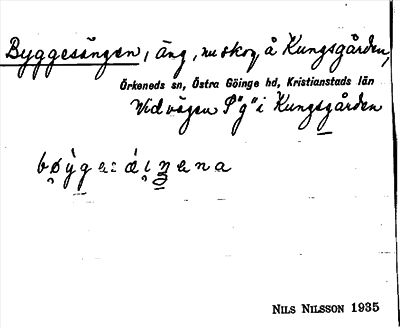 Byggesängen, äng, nu skog, å Kungsgården,
Örkeneds sn, Östra Göinge hd, Kristianstads län
Vid vägen "g" i Kungsgården
NILS NILSSON 1935